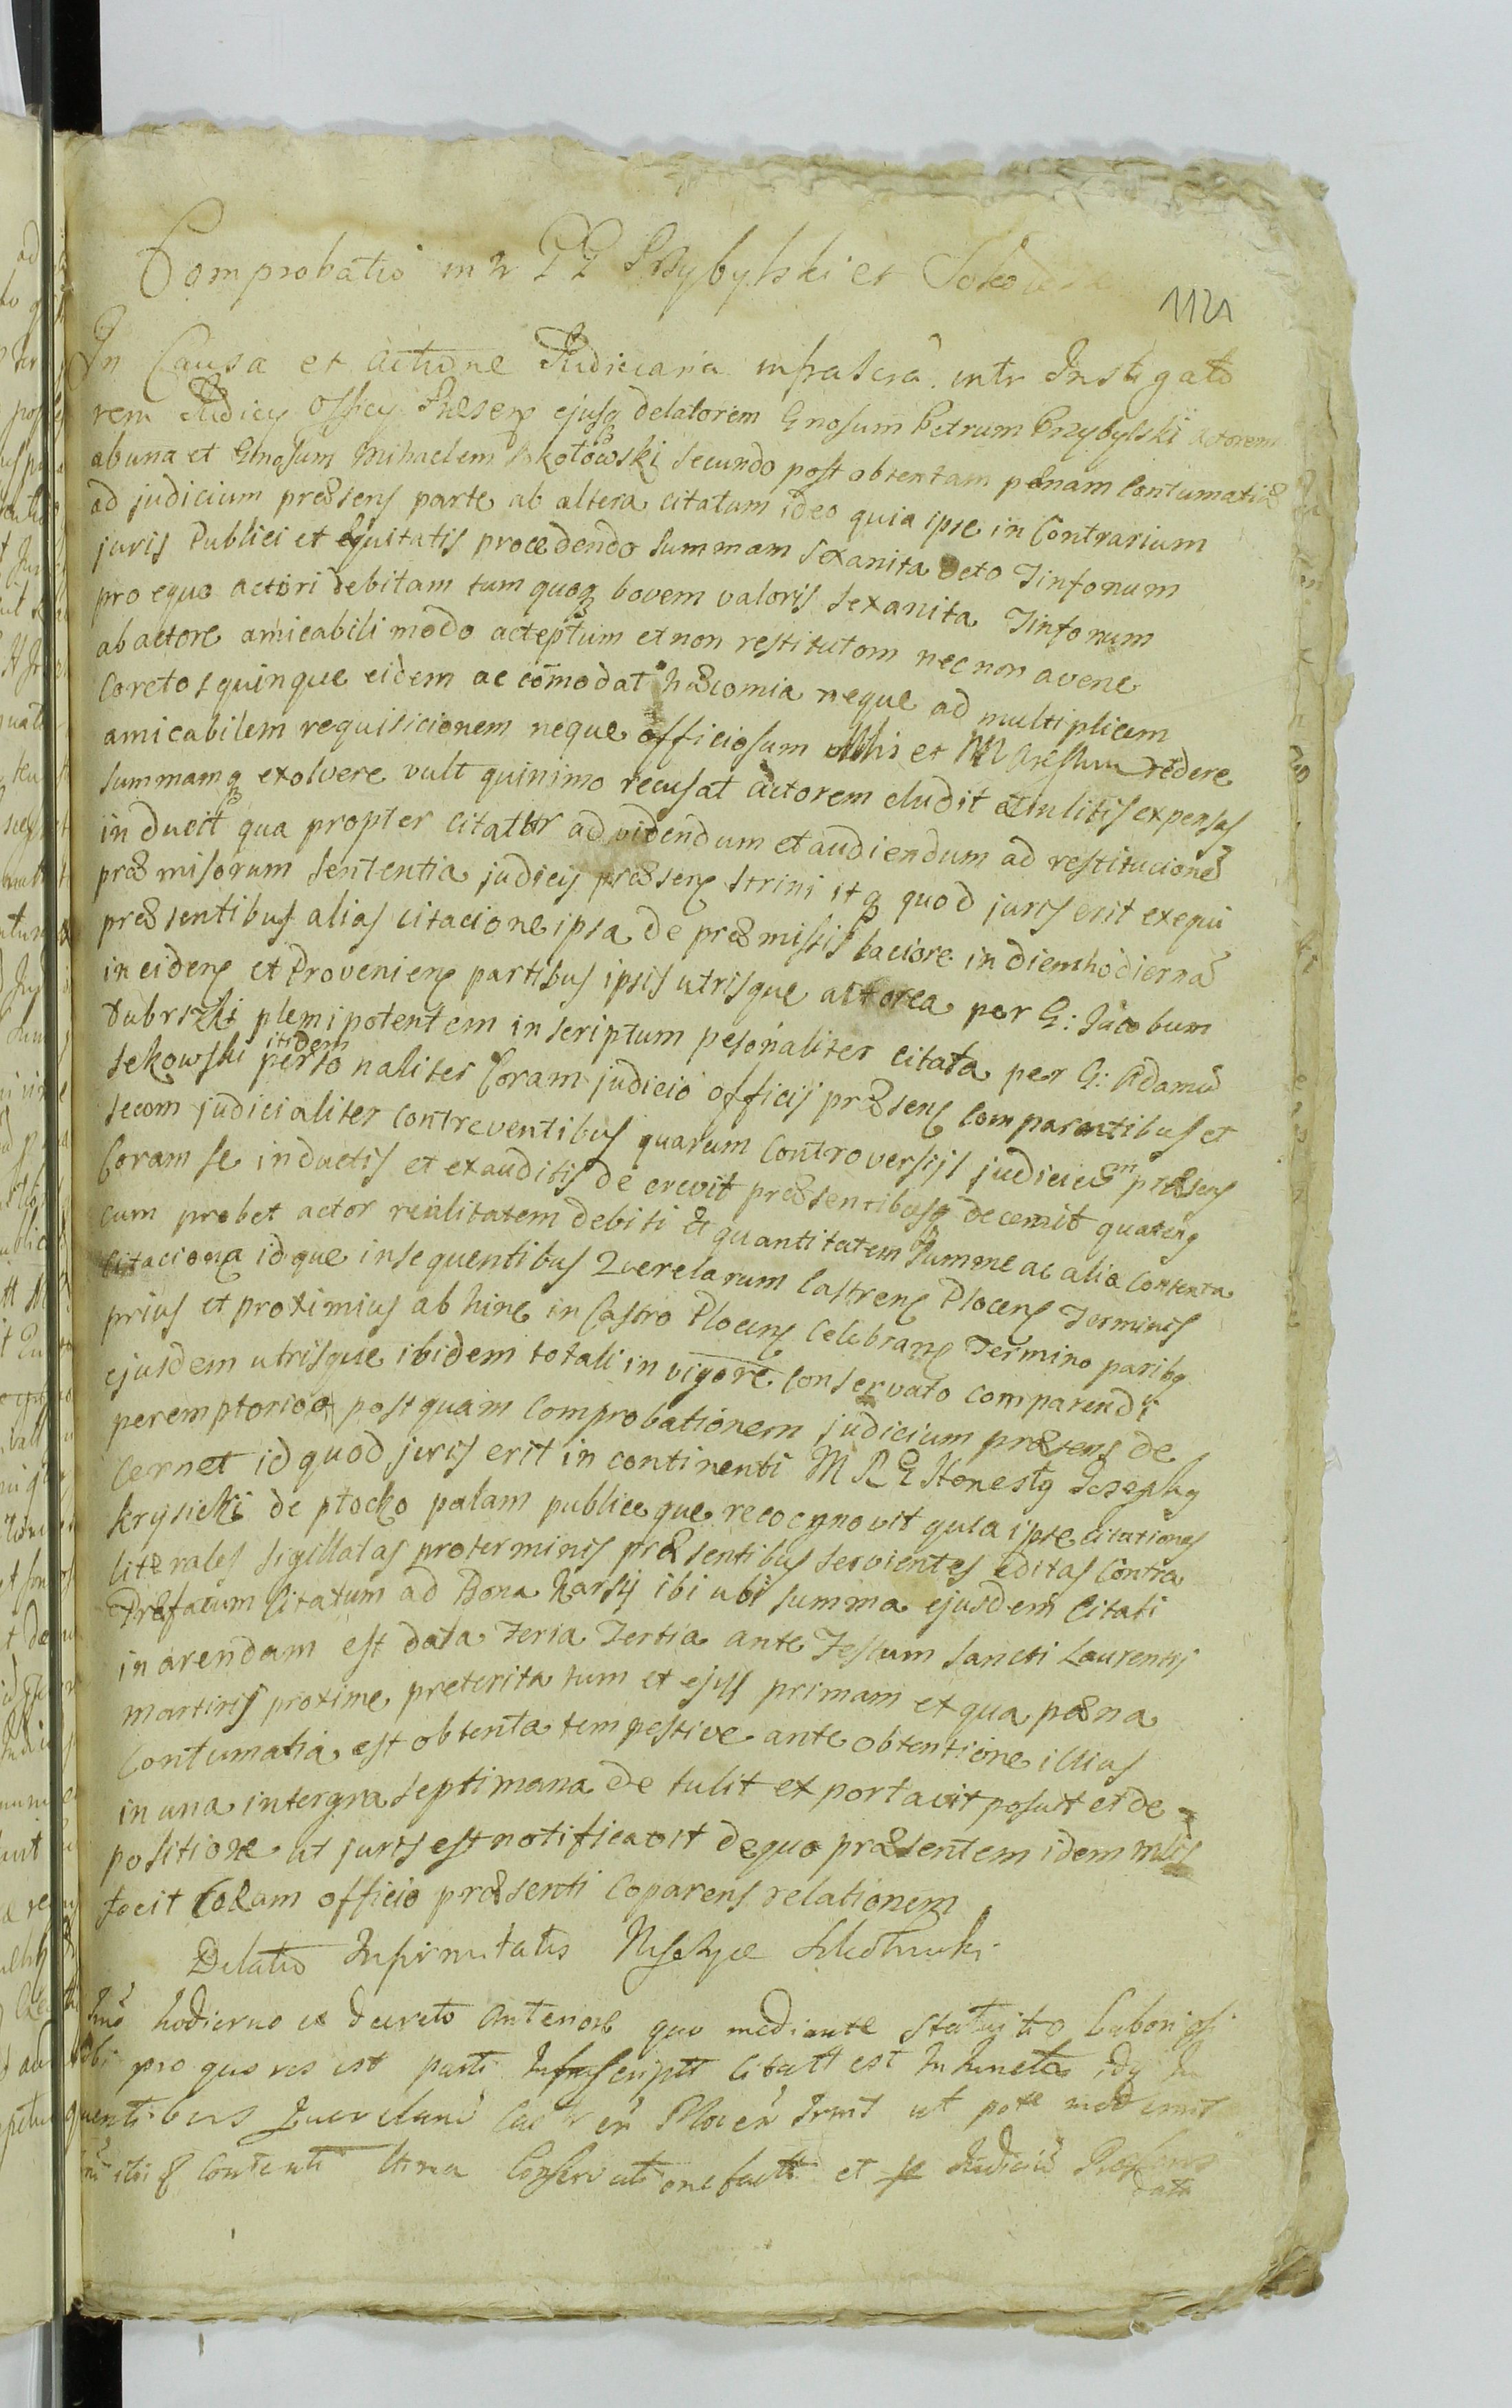 Comprobatio intr GG Przybylski et Sokołowski
1121
In Causa et actione Judiciaria infrascra. intr Instigato
rem Judicij Officij Praesens ejusq delatorem Gnosum Petrum Przybylski actorem
ab una et Gnosum Mihaelem Sokołowski secundo post obtentam penam Contumatiæ
ad judicium præsens parte ab altera citatum ideo quia ipse in Contrarium
juris Publici et Equitatis procedendo Summam sexaginta octo Tinfonum
pro equo actori debitam tum quoq bovem valoris sexaginta Tinfonum
ab actore amicabili modo acceptum et non restitutom nec non avene
Coretos quinque eidem accomodat hæc omnia neque ad multiplicem
amicabilem requisicionem neque officiosum redere
summamq exolvere vult quinimo recusat actorem eludit et in litis expensas
inducit qua propter citatur ad videndum et audiendum ad restitucionē
præmisorum sententia judicij præsens strini itq quod juris erit exequi
præsentibus alias citacione ipsa de præmissis laciore in diem hodiernā
incidens et Proveniens partibus ipsis utrisque actorea per G: Jacobum
dubrszki plenipotentem inscriptum pesonaliter citata per G: Adamū
sekowski itidem personaliter Coram judicio officij præsens comparentibus et
secom judicialiter contreventibus quarum Controversijs judicium præsens
Coram se inductis et exauditis decrevit præsentibusq decernit quatenq
cum probet actor realitatem debiti et quantitatem summe ac alia Contenta
Citaciona idque insequentibus Querelarum Castrens Plocens Terminis
prius et proximius ab hinc in Castro Plocens Celebrans Termino paribq
ejusdem utrisque ibidem totali in vigore conservato comparendi
peremptorio post quam Comprobationem judicium præsens de
Cernet id quod juris erit in continenti M R G Honestq Josephq
krysicki de płocko palam publice que recognovit quia ipse citationes
literales sigillatas pro terminis præsentibus servientes editas Contra
Præfatum Citatum ad Bona Karsy ibi ubi summa ejusdem Citati
in arendam est data Feria Tertia ante Festum Sancti Laurentij
martiris proxime preterita tum et ejus primam ex qua pæna
Contumatia est obtenta tempestive ante obtentione illius
in una intergra septimana detulit et portavit posuit et de
positione ut juris est notificavit de quo præsentem idem mlis
fecit Coram officio præsenti Coparens relationem
Dilatio Infirmitatis
hodierno ex decreto anteriore quo mediante statuitio Laboriosi
pro quo res est parti Infrascriptt Citatt est Injuncta idq In
quentibus Querelarū Castren Plocen Trmis ut pote modernis
Contenti Conservatione factt et se Judiciū Præsens
data